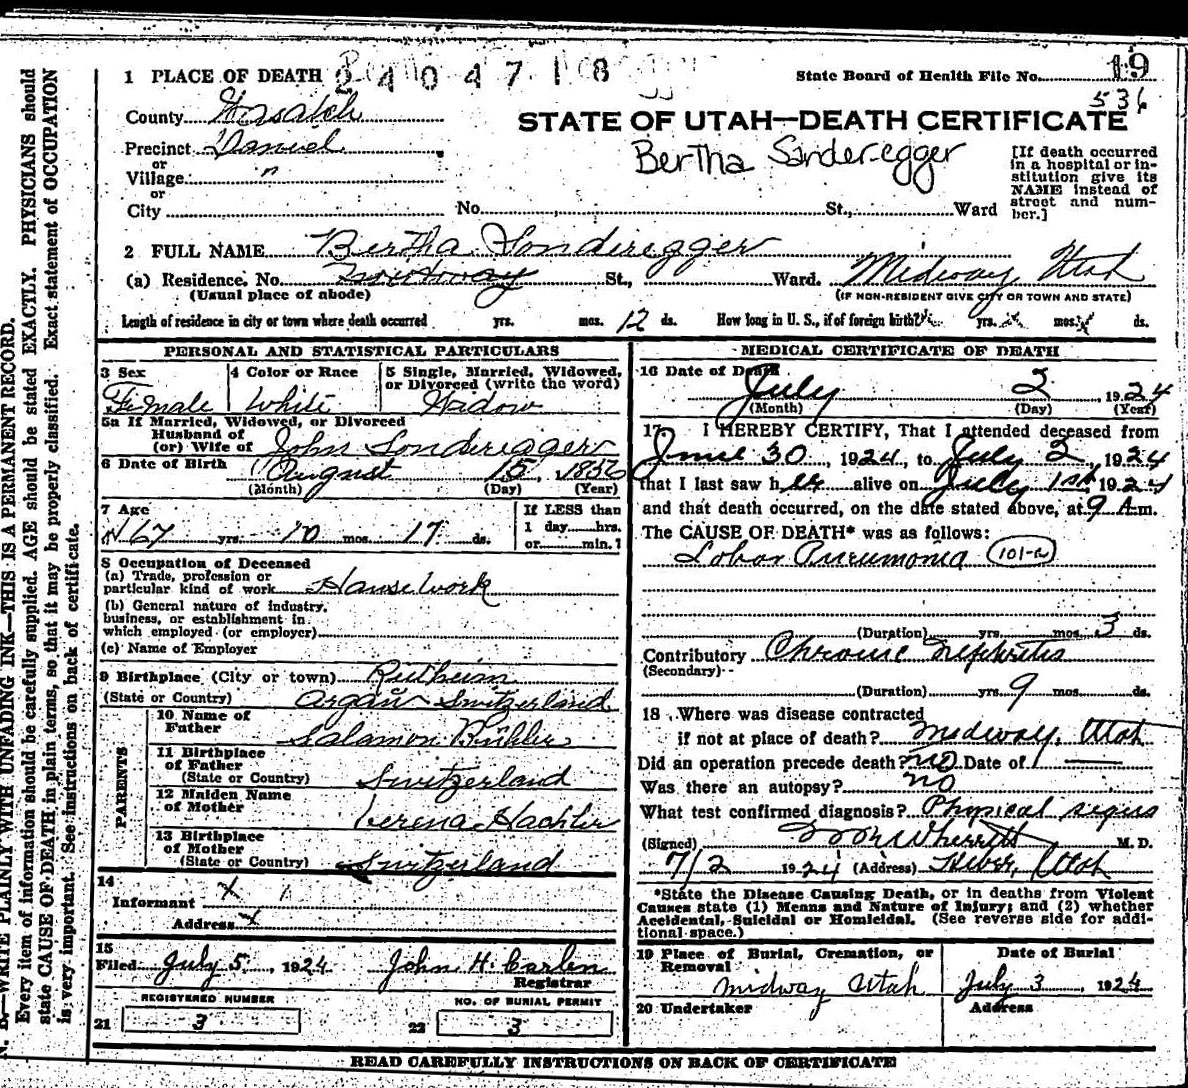 1 PLACE OF DEATH 2 4 0 4 7 1 8
State Board of Health File No. 19
536
County Wasatch
STATE OF UTAH—DEATH CERTIFICATE
Bertha Sanderegger
Precinct Daniel
or
Village "
or
City No. St., Ward
[If death occurred in a hospital or institution give its NAME instead of street and number.]
2 FULL NAME Bertha Sonderegger
(a) Residence. No. St., Ward. Midway Utah
(Usual place of abode) (IF NON-RESIDENT GIVE CITY OR TOWN AND STATE)
Length of residence in city or town where death occurred yrs. mos. 12 ds. How long in U. S., if of foreign birth? yrs. x mos. x ds.
PERSONAL AND STATISTICAL PARTICULARS
3 Sex Female
4 Color or Race White
5 Single, Married, Widowed, or Divorced (write the word) Widow
5a If Married, Widowed, or Divorced
Husband of
(or) Wife of John Sonderegger
6 Date of Birth August 15, 1856
(Month) (Day) (Year)
7 Age 67 yrs. 10 mos. 17 ds.
If LESS than
1 day hrs.
or min.?
8 Occupation of Deceased
(a) Trade, profession or
particular kind of work House Work
(b) General nature of industry,
business, or establishment in
which employed (or employer)
(c) Name of Employer
9 Birthplace (City or town)
(State or Country) Argau Switzerland
PARENTS
10 Name of
Father Salamon Bühler
11 Birthplace
of Father
(State or Country) Switzerland
12 Maiden Name
of Mother Verena Hachler
13 Birthplace
of Mother
(State or Country) Switzerland
14
Informant x
Address x
15
Filed July 5, 1924 John H. Carlen
Registrar
REGISTERED NUMBER
21 3
NO. OF BURIAL PERMIT
22 3
MEDICAL CERTIFICATE OF DEATH
16 Date of Death
July 2, 1924
(Month) (Day) (Year)
17 I HEREBY CERTIFY, That I attended deceased from
June 30, 1924, to July 2, 1924
that I last saw her alive on July 1st, 1924
and that death occurred, on the date stated above, at 9 A.m.
The CAUSE OF DEATH* was as follows:
Lobar Pneumonia 101-a
(Duration) yrs. mos. 3 ds.
Contributory Chronic Nephritis
(Secondary)
(Duration) yrs. 9 mos. ds.
18 Where was disease contracted
if not at place of death? Midway, Utah
Did an operation precede death? no Date of —
Was there an autopsy? no
What test confirmed diagnosis? Physical signs
(Signed) Wherritt M. D.
7/2 1924 (Address) Heber, Utah
*State the Disease Causing Death, or in deaths from Violent
Causes state (1) Means and Nature of Injury; and (2) whether
Accidental, Suicidal or Homicidal. (See reverse side for addi-
tional space.)
19 Place of Burial, Cremation, or
Removal
Midway Utah
Date of Burial
July 3, 1924
20 Undertaker Address
READ CAREFULLY INSTRUCTIONS ON BACK OF CERTIFICATE
N. B.—WRITE PLAINLY WITH UNFADING INK—THIS IS A PERMANENT RECORD.
Every item of information should be carefully supplied. AGE should be stated EXACTLY. PHYSICIANS should
state CAUSE OF DEATH in plain terms, so that it may be properly classified. Exact statement of OCCUPATION
is very important. See instructions on back of certificate.